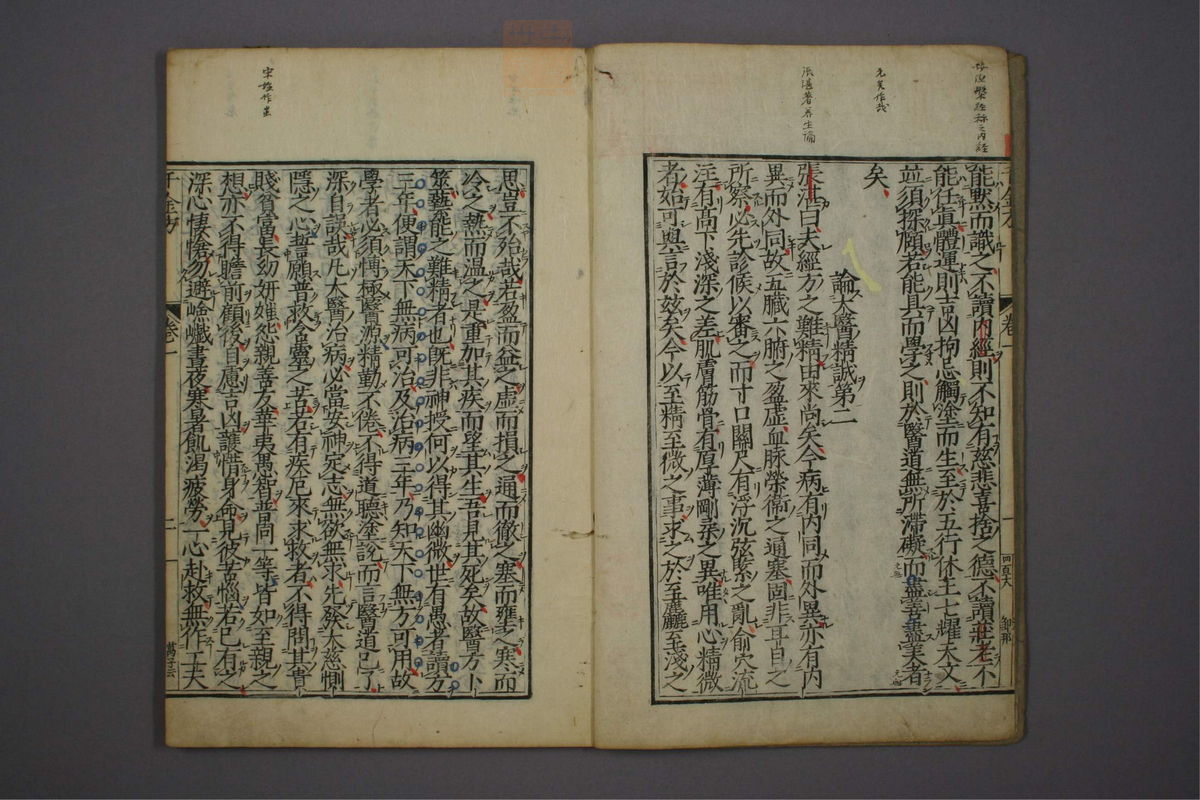 能默而識之不讀内經則不知有慈悲喜捨之德不讀莊老不
能任眞體運則吉凶拘忌觸塗而生至於五行休王七耀天文
並須探賾若能具而學之則於醫道無所滯礙而盡善盡美者
矣
論大醫精誠第二
張湛曰夫經方之難精由來尚矣今病有内同而外異亦有内
異而外同故五臟六腑之盈虛血脉榮衞之通塞固非耳目之
所察必先診候以審之而寸口關尺有浮沉弦緊之亂俞穴流
注有高下淺深之差肌膚筋骨有厚薄剛柔之異唯用心精微
者始可與言於兹矣今以至精至微之事求之於至麤至淺之
思豈不殆哉若盈而益之虛而損之通而徹之塞而壅之寒而
冷之熱而温之是重加其疾而望其生吾見其死矣故醫方卜
筮藝能之難精者也既非神授何以得其幽微世有愚者讀方
三年便謂天下無病可治及治病三年乃知天下無方可用故
學者必須博極醫源精勤不倦不得道聽塗說而言醫道已了
深自誤哉凡大醫治病必當安神定志無欲無求先發大慈惻
隱之心誓願普救含靈之苦若有疾厄來求救者不得問其貴
賤貧富長幼妍媸怨親善友華夷愚智普同一等皆如至親之
想亦不得瞻前顧後自慮吉凶護惜身命見彼苦惱若己有之
深心悽愴勿避嶮巇晝夜寒暑飢渴疲勞一心赴救無作工夫
張湛著養生論
千金方
卷一
一
千金方
卷一
二